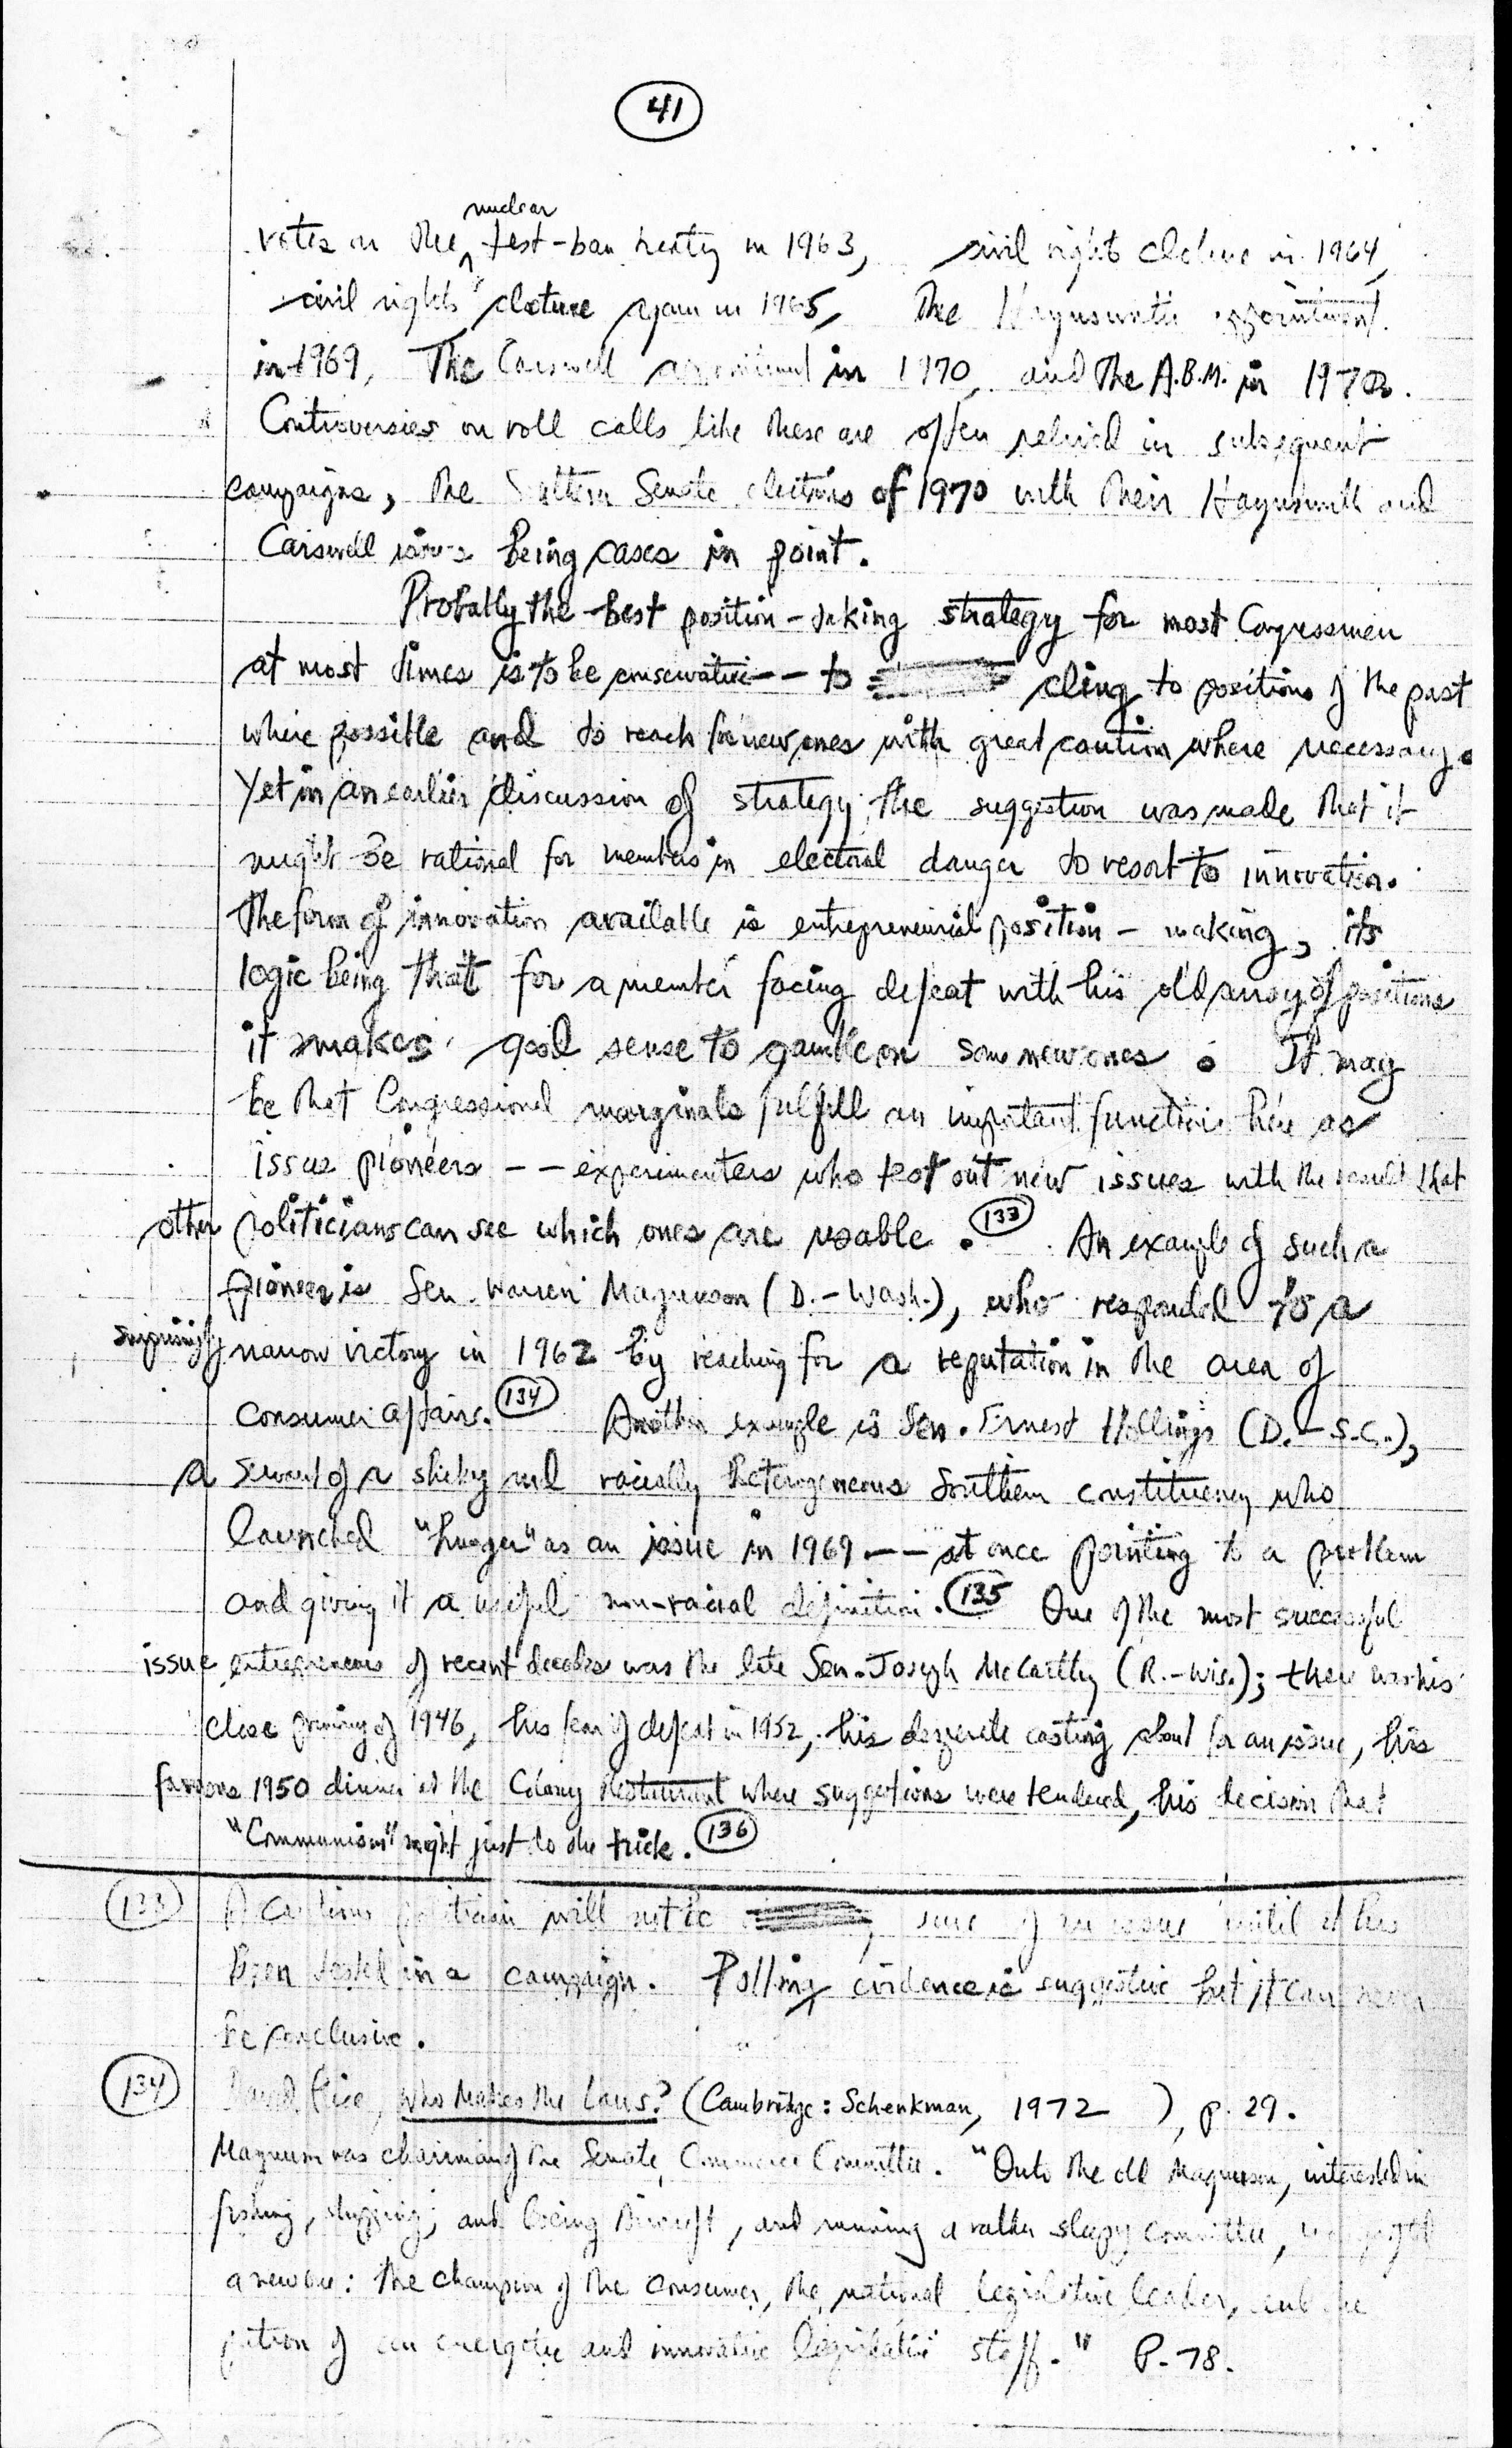 41
nuclear
votes on the test-ban treaty in 1963, civil right cloture in 1964,
civil rights cloture again in 1965, the Haynsworth appointment
in 1969, the Carswell appointment in 1970, and the A.B.M. in 1970.
Controversies on roll calls like these are often relived in subsequent
campaigns, the Southern Senate elections of 1970 with their Haynsworth and
Carswell issues being cases in point.
Probably the best position-taking strategy for most Congressmen
at most times is to be conservative -- to cling to positions of the past
where possible and to reach for new ones with great caution where necessary.
Yet in an earlier discussion of strategy the suggestion was made that it
might be rational for members in electoral danger to resort to innovation.
The form of innovation available is entrepreneurial position-making, its
logic being that for a member facing defeat with his old array of positions
it makes good sense to gamble on some new ones. It may
be that Congressional marginals fulfill an important function here as
issue pioneers -- experimenters who test out new issues with the result that
other politicians can see which ones are usable. 133 An example of such a
pioneer is Sen. Warren Magnuson (D.-Wash.), who responded to a
surprisingly narrow victory in 1962 by reaching for a reputation in the area of
consumer affairs. 134 Another example is Sen. Ernest Hollings (D.-S.C.),
a servant of a sticky and racially heterogeneous Southern constituency who
launched "hunger" as an issue in 1969 -- at once pointing to a problem
and giving it a useful non-racial definition. 135 One of the most successful
issue entrepreneurs of recent decades was the late Sen. Joseph McCarthy (R.-Wis.); there was his
close primary of 1946, his fear of defeat in 1952, his desperate casting about for an issue, his
famous 1950 dinner at the Colony Restaurant where suggestions were tendered, his decision that
"Communism" might just to the trick. 136
133 A cautious politician will not be sure of an issue until it has
been tested in a campaign. Polling evidence is suggestive but it can never
be conclusive.
134 David Price, Who Makes the Laws? (Cambridge: Schenkman, 1972 ), p. 29.
Magnuson was chairman of the Senate Commerce Committee. "Onto the old Magnuson, interested in
fishing, shipping, and Boeing Aircraft, and running a rather sleepy committee, was grafted
a new one: the champion of the consumer, the national legislative leader, and the
patron of an energetic and innovative legislative staff." P. 78.